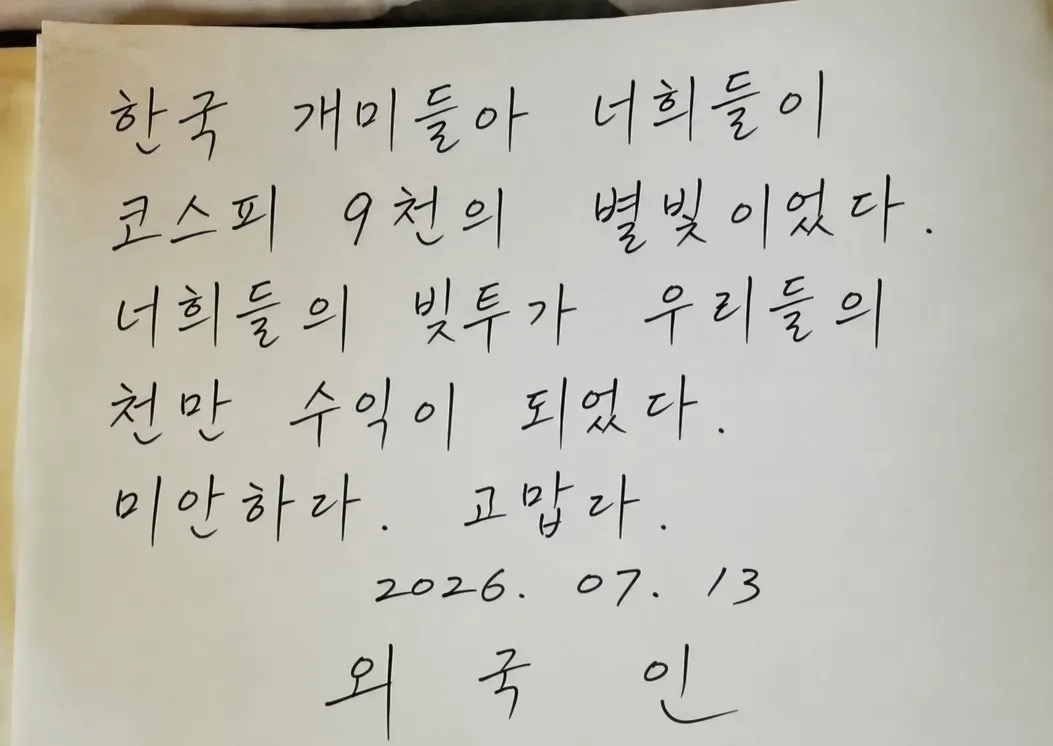 한국 개미들아 너희들이
코스피 9천의 별빛이었다.
너희들의 빚투가 우리들의
천만 수익이 되었다.
미안하다. 고맙다.
2026. 07. 13
외국인